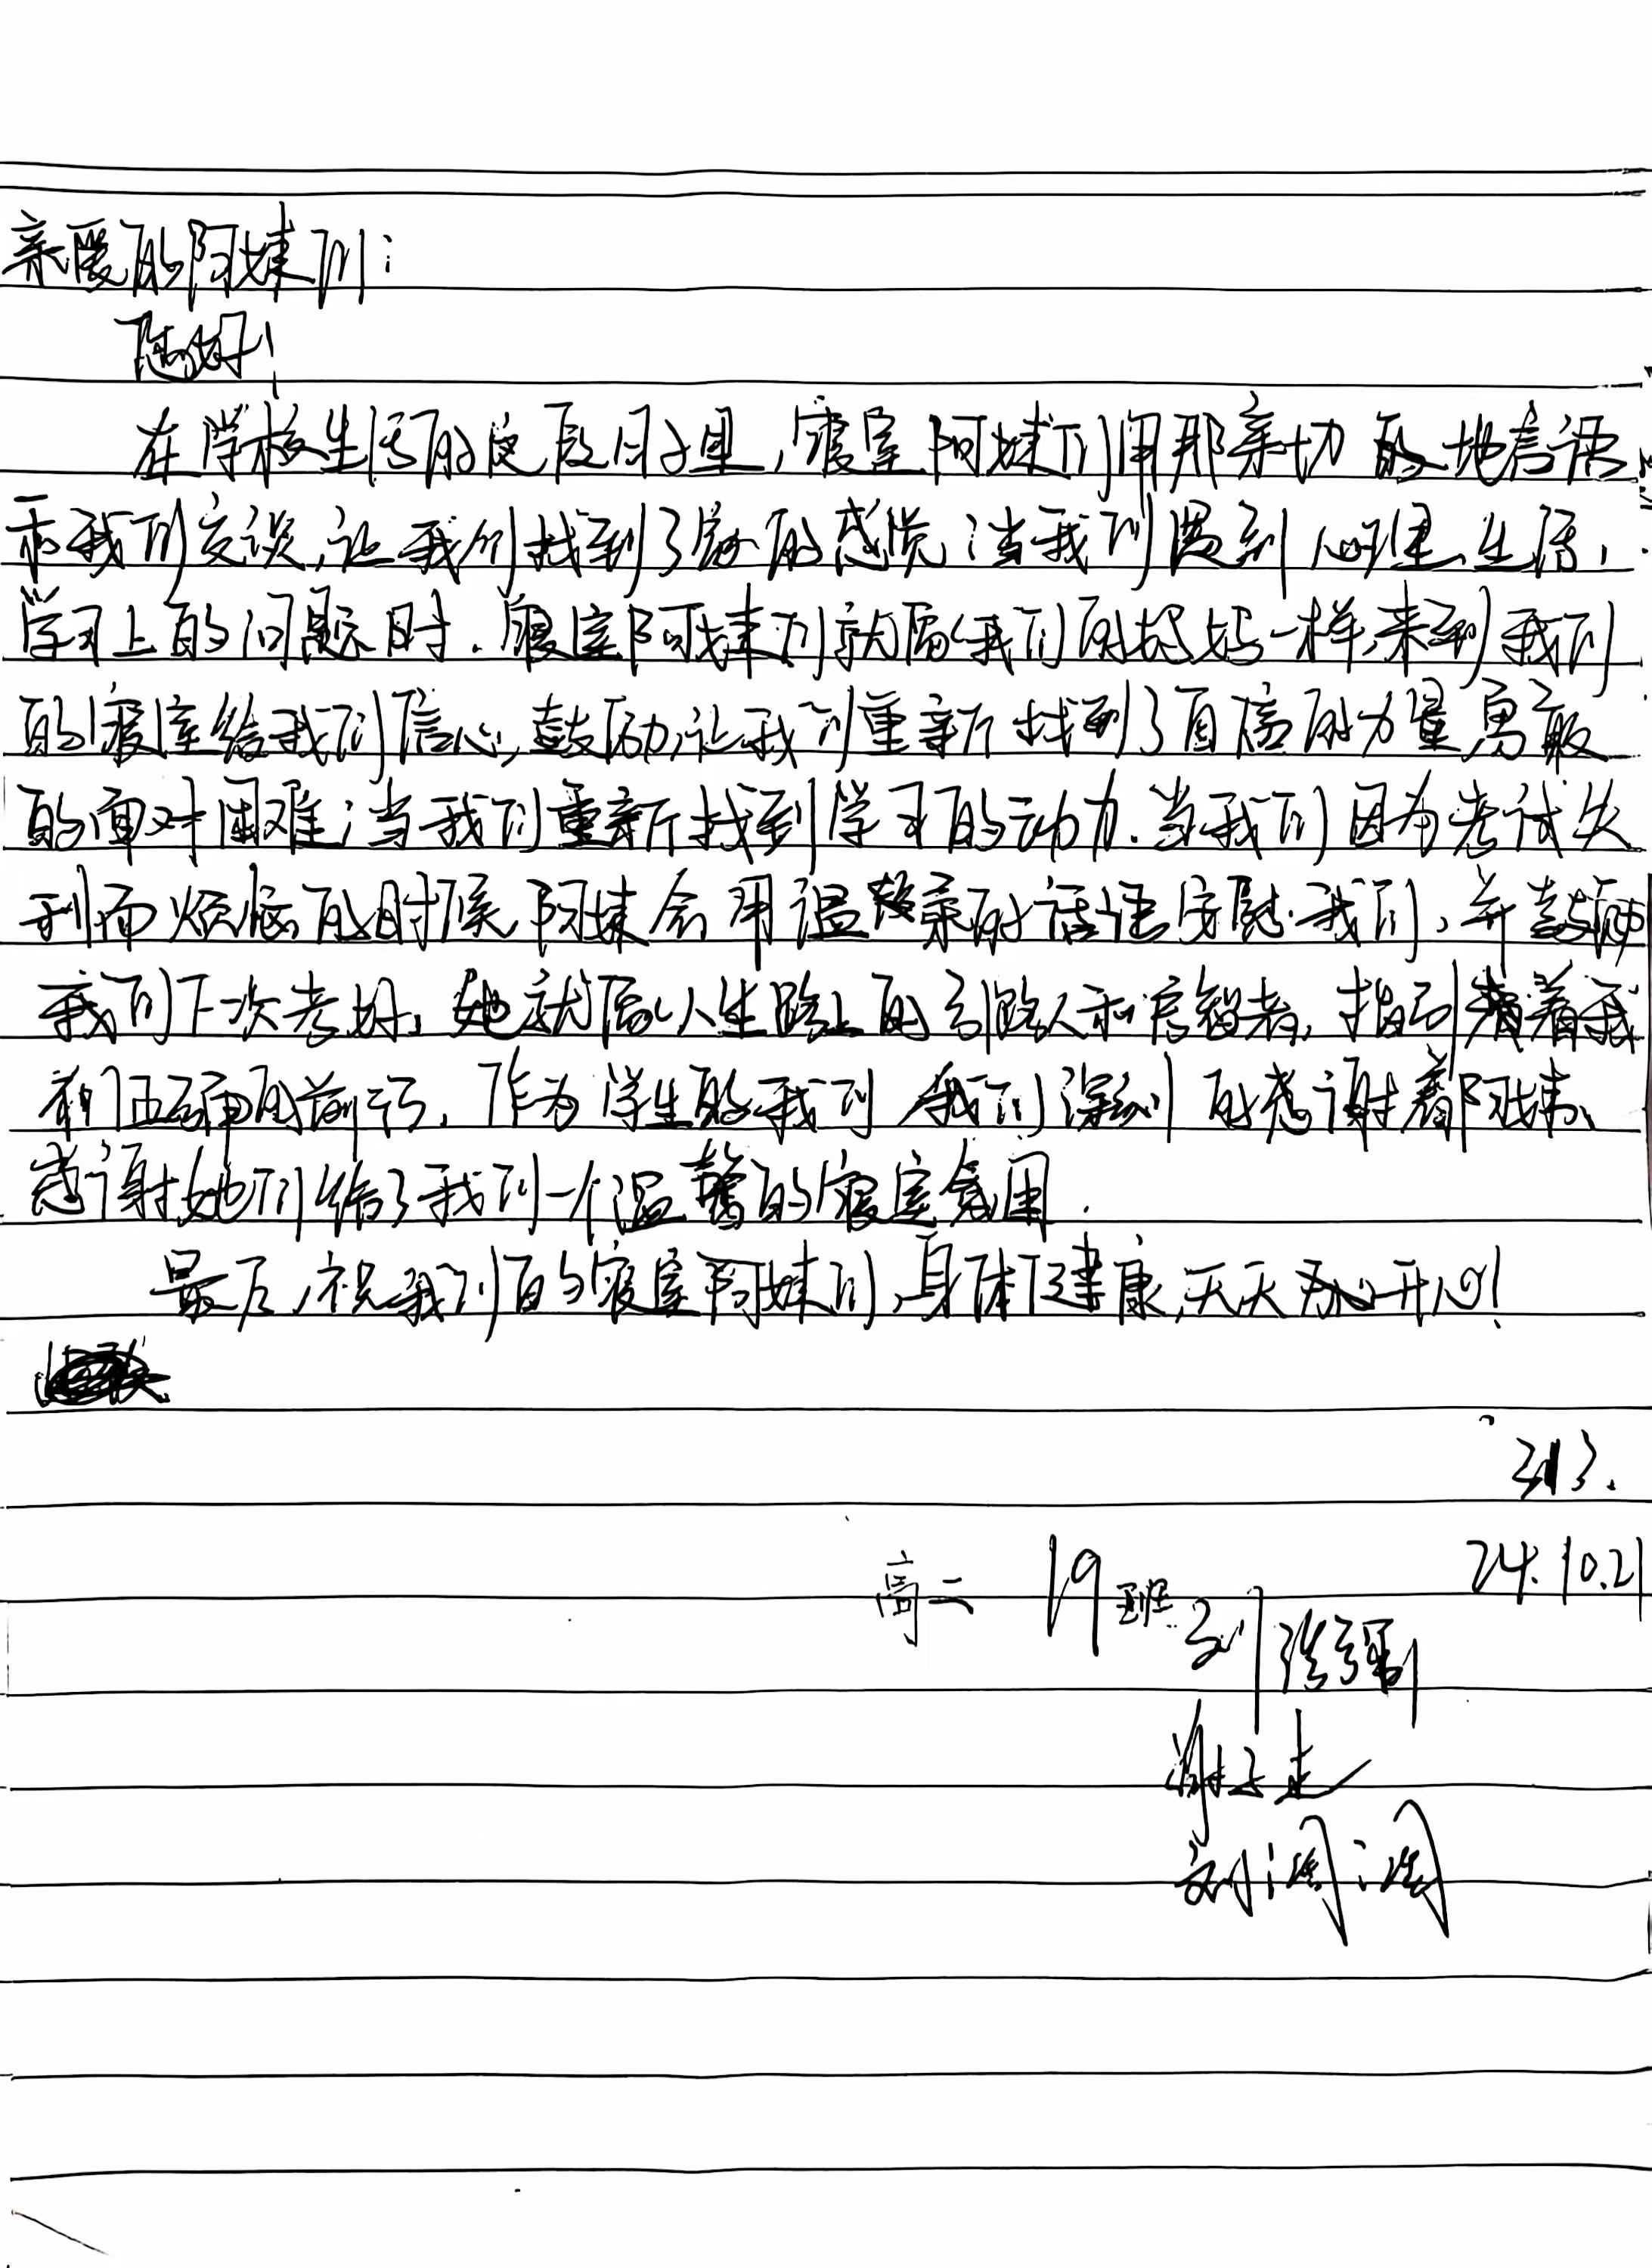 亲爱的阿姨们：
您好！
在学校生活的这段日子里，寝室阿姨们用那亲切的地言语
和我们交谈，让我们找到了家的感觉；当我们遇到心理、生活、
学习上的问题时，寝室阿姨们就像我们的妈妈一样，来到我们
的寝室给我们信心，鼓励，让我们重新找到了自信的力量勇敢
的面对困难；当我们重新找到学习的动力，当我们因为考试失
利而烦恼的时候，阿姨会用温柔的话语安慰我们，并鼓励
我们下次考好，她就像人生路上的引路人和启智者，指引着我
们正确的前行，作为学生的我们 我们深刻的感谢着阿姨，
感谢她们给了我们一个温馨的寝室氛围．
最后，祝我们的寝室阿姨们，身体健康，天天开心！
313．
24.10.21
高二 19班 刘 强
谢 志
刘 润